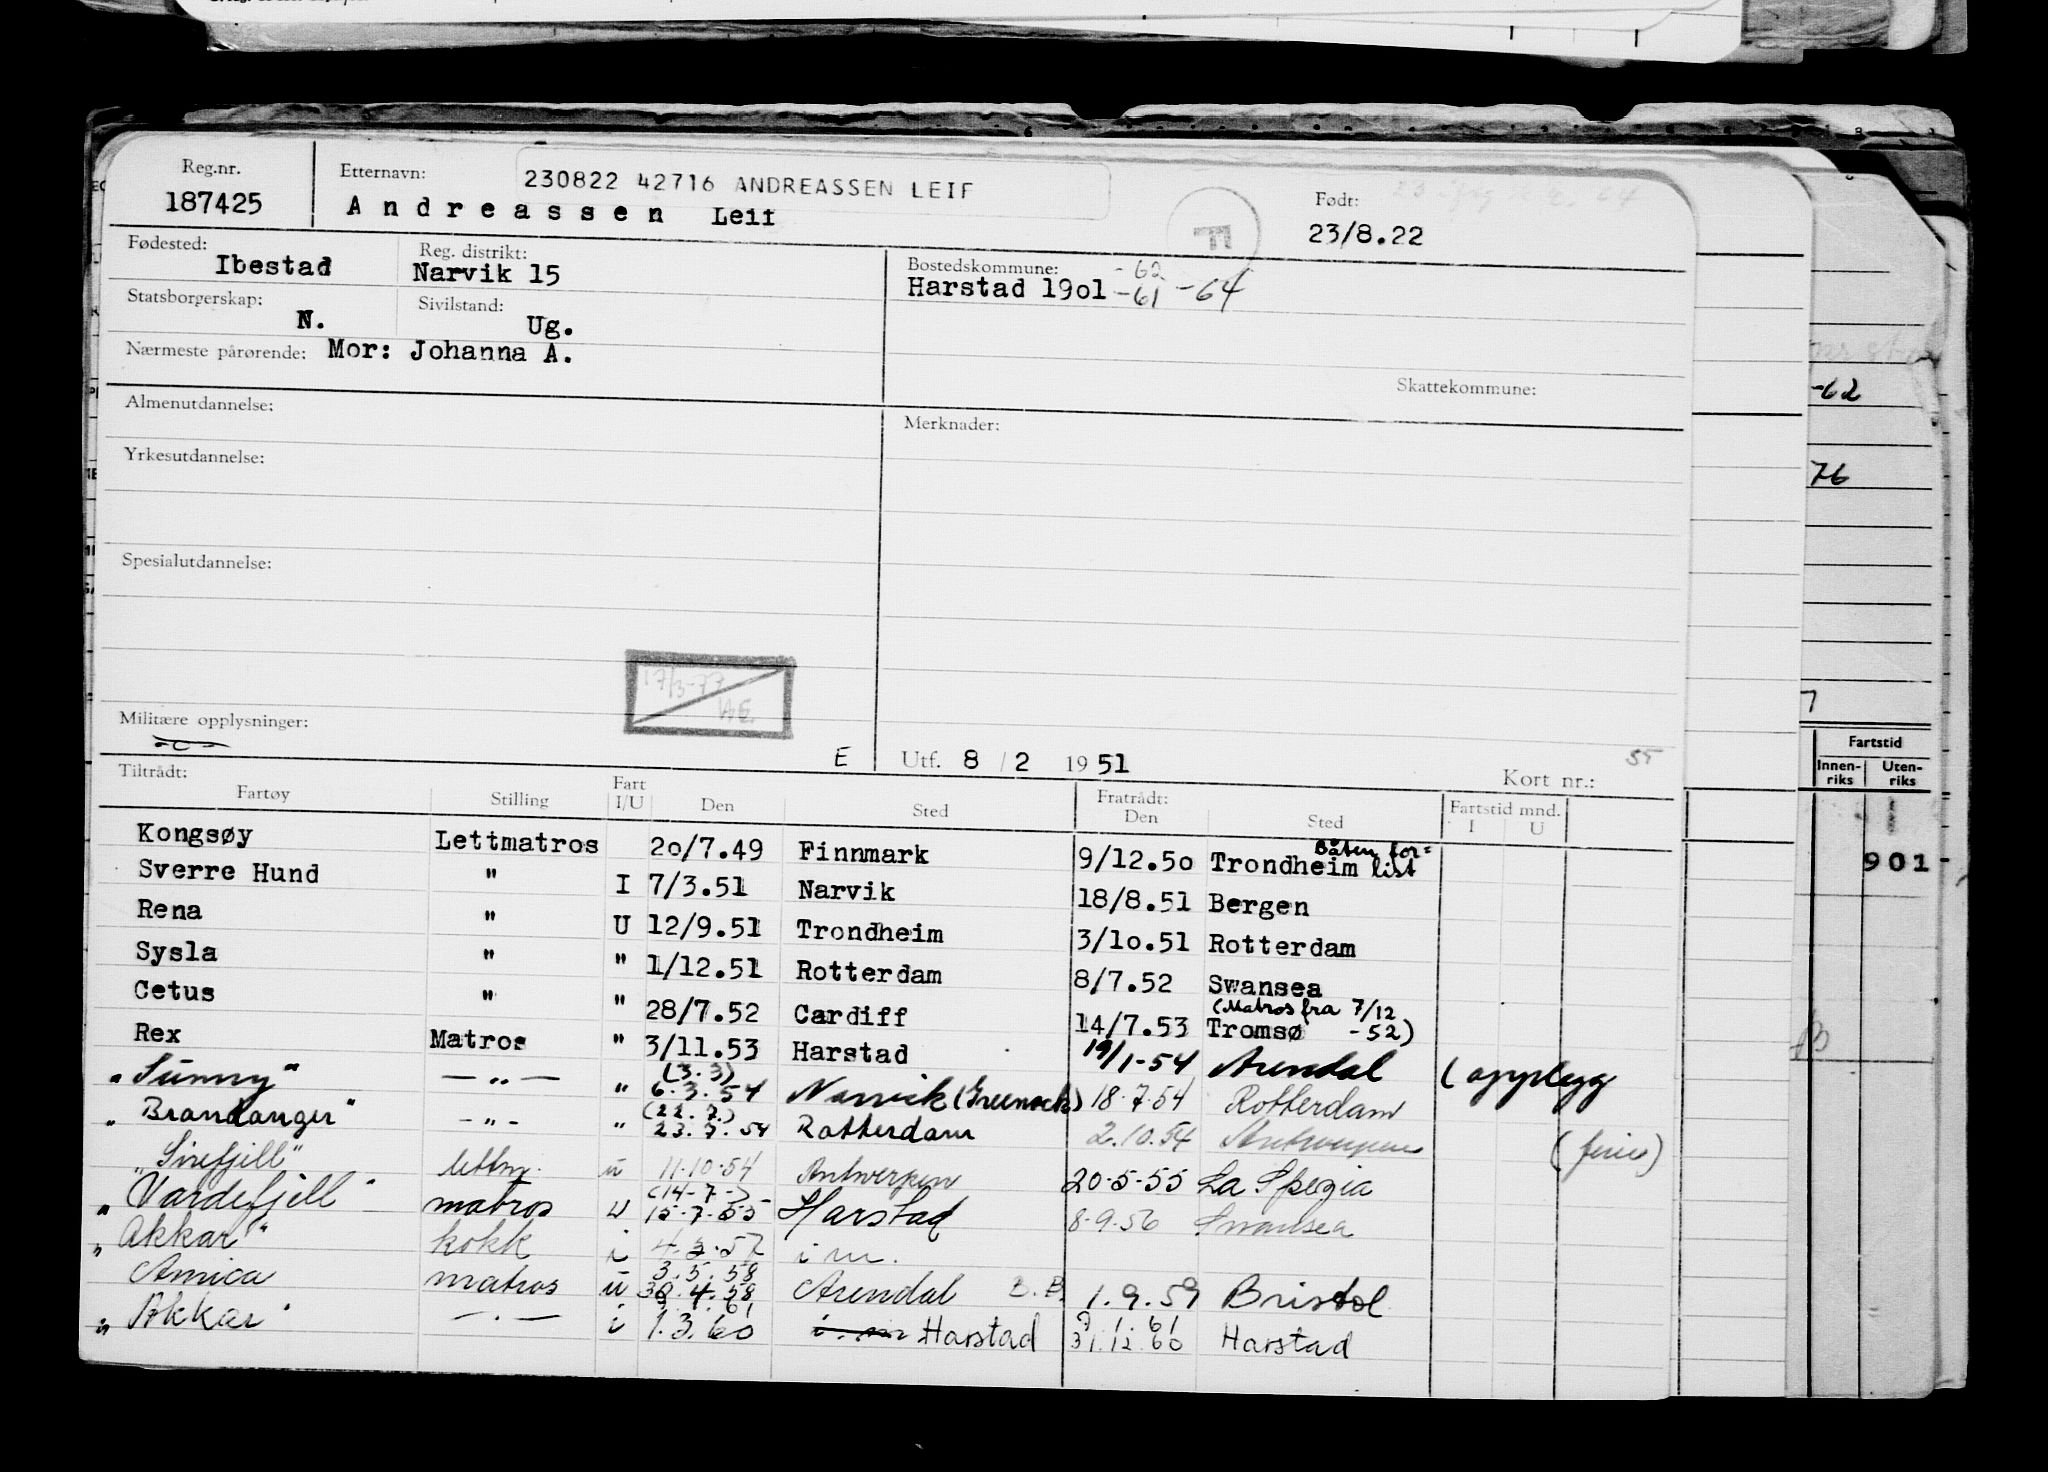 Reg.nr. Etternavn: 230822 42716 ANDREASSEN LEIF Født:
187425 Andreassen Leif 23/8.22
F
Fødested: Ibestad Reg. distrikt: Narvik 15 Bostedskommune: Harstad 19o1 -62 -61 -64
Statsborgerskap: N. Sivilstand: Ug.
Nærmeste pårørende: Mor: Johanna A.
Skattekommune:
Almenutdannelse: Merknader:
Yrkesutdannelse:
Spesialutdannelse:
17/3-77
Militære opplysninger:
E Utf. 8 / 2 1951 Kort nr.:
Tiltrådt: Fratrådt: Fartstid mnd.
Fartøy Stilling Fart I/U Den Sted Den Sted I U
Kongsøy Lettmatros 2o/7.49 Finnmark 9/12.5o Trondheim Båten for= list
Sverre Hund " I 7/3.51 Narvik 18/8.51 Bergen
Rena " U 12/9.51 Trondheim 3/1o.51 Rotterdam
Sysla " " 1/12.51 Rotterdam 8/7.52 Swansea
Cetus " " 28/7.52 Cardiff 14/7.53 Tromsø (Matros fra 7/12 -52)
Rex Matros " 3/11.53 Harstad 19/1-54 Arendal (opplegg
"Sunny" — " — " (3.3) 6.3.54 Narvik (Greenock) 18.7.54 Rotterdam
"Brandanger" - " - " (22.7.) 23.7.54 Rotterdam 2.10.54 Antwerpen (ferie)
"Sirefjell" lettm. u 11.10.54 Antwerpen 20-5-55 La Spezia
"Vardefjell" matros u (14-7-) 15-7-55 Harstad 8.9.56 Swansea
"Akkar" kokk i 4.3.57 i m.
Amica matros u 3.5.58 30.4.58 Arendal B.B. 1.9.59 Bristol
"Akkar" — . — i 1.3.60 Harstad 31.12.60 Harstad
-62
76
Fartstid
Innen-riks Uten-riks
901